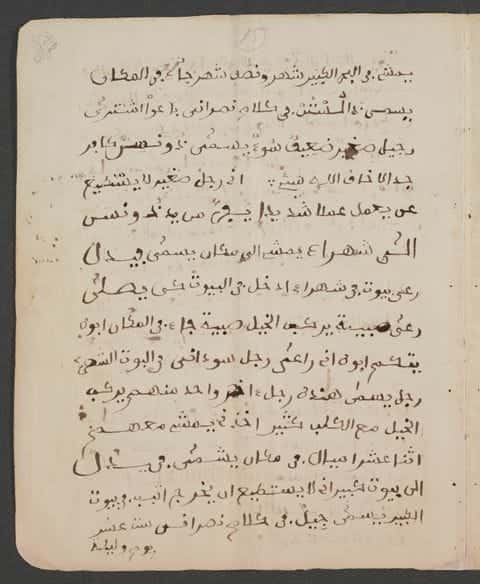 يمشي في البحر الكبير شهر ونصف شهر جاء في المكان
يسمى في كلام نصراني باعوا اشترى
رجيل صغير ضعيف سوء يسمى كافر
جدا لا خاف الله شيئا اني رجل صغير لا يستطيع
عن يعمل عملا شديدا يفر من يد
شهراء يمشي الى مكان يسمى فيدل
رءى بيوت في شهراء ادخل في البيوت كى يصلى
رءى صبية يركب الخيل صبية جاء في المكان ابوه
يتكلم ابوه اني رءى رجل سوداني في البيوت
رجل يسمى هنده رجل ءاخر واحد منهم يركب
الخيل مع الكلب كثير اخذني يمشي معهم
اثنا عشر اميال في مكان يسمى فيدل
الى بيوت كبير اني لا يستطيع ان يخرج في بيوت
الكبير يسمى جيل في كلام نصراني ست عشر
يوم وليلة